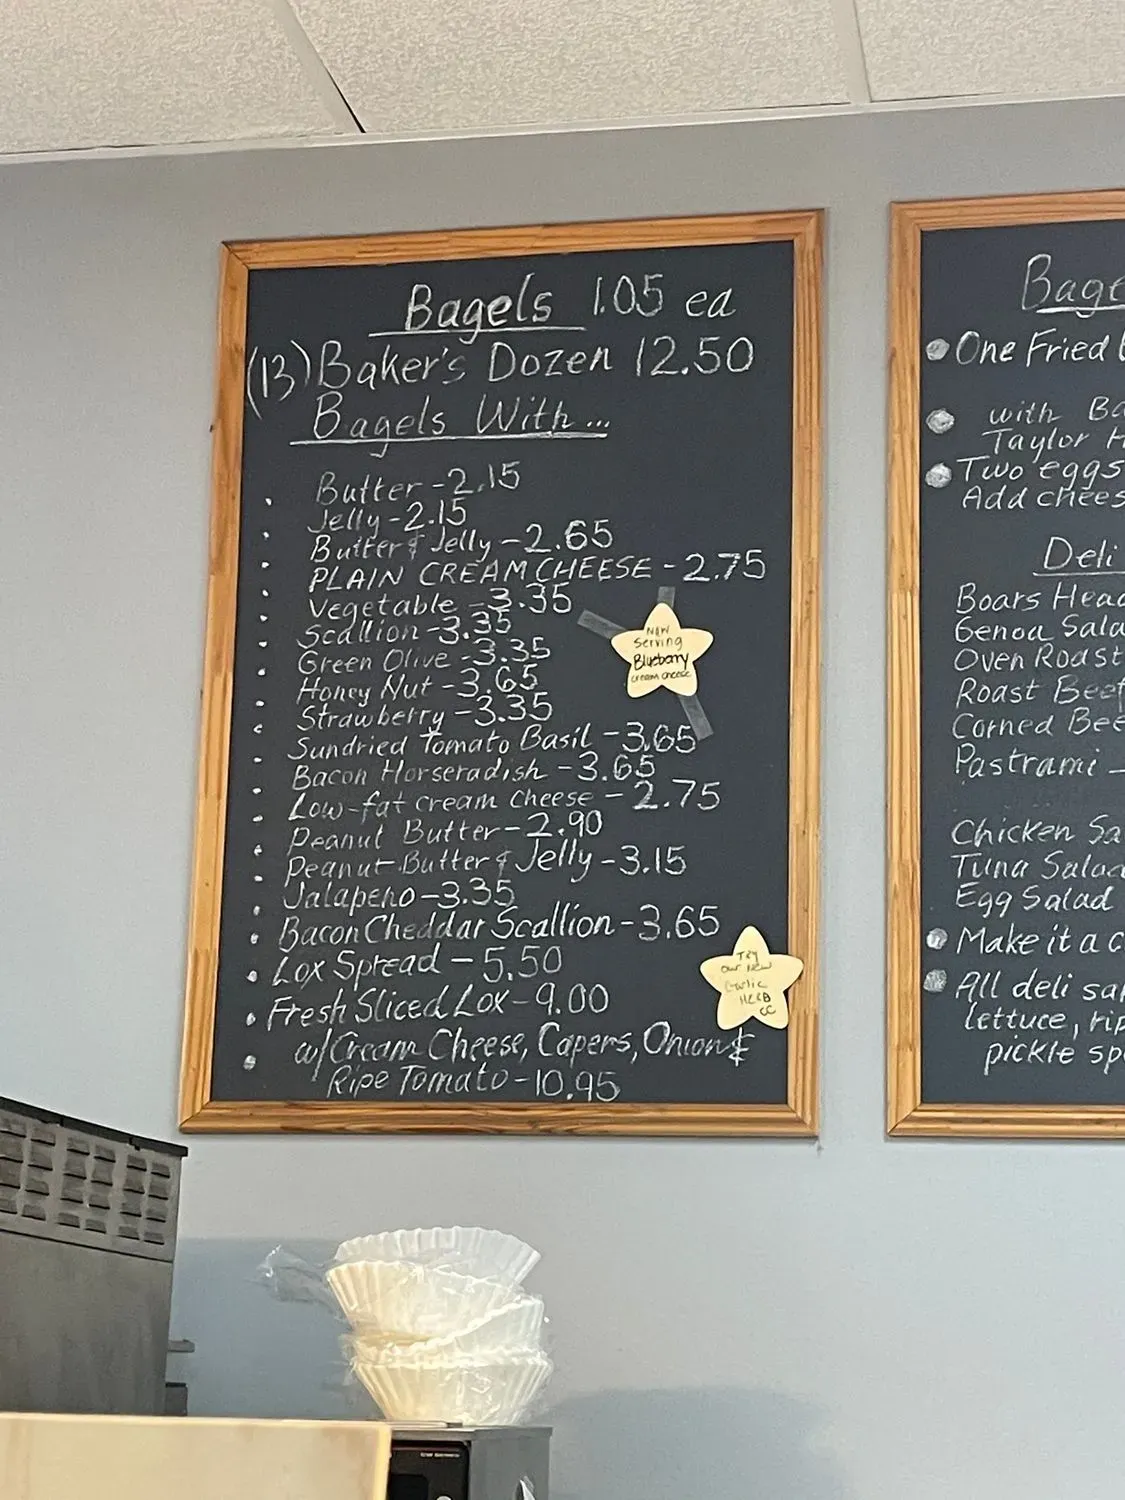 Bagels 1.05 ea
(13) Baker's Dozen 12.50
Bagels With...
Butter - 2.15
Jelly - 2.15
Butter & Jelly - 2.65
PLAIN CREAM CHEESE - 2.75
Vegetable - 3.35
Scallion - 3.35
Green Olive - 3.35
Honey Nut - 3.65
Strawberry - 3.35
Sundried Tomato Basil - 3.65
Bacon Horseradish - 3.65
Low-fat cream cheese - 2.75
Peanut Butter - 2.90
Peanut Butter & Jelly - 3.15
Jalapeno - 3.35
Bacon Cheddar Scallion - 3.65
Lox Spread - 5.50
Fresh Sliced Lox - 9.00
w/ Cream Cheese, Capers, Onion &
Ripe Tomato - 10.95
Now
Serving
Blueberry
cream cheese
Try
our NEW
Garlic
HERB
CC
Bage
One Fried
with Ba
Taylor H
Two eggs
Add chees
Deli
Boars Head
Genoa Sala
Oven Roast
Roast Beef
Corned Bee
Pastrami -
Chicken Sa
Tuna Salad
Egg Salad
Make it a c
All deli sa
lettuce, rip
pickle sp